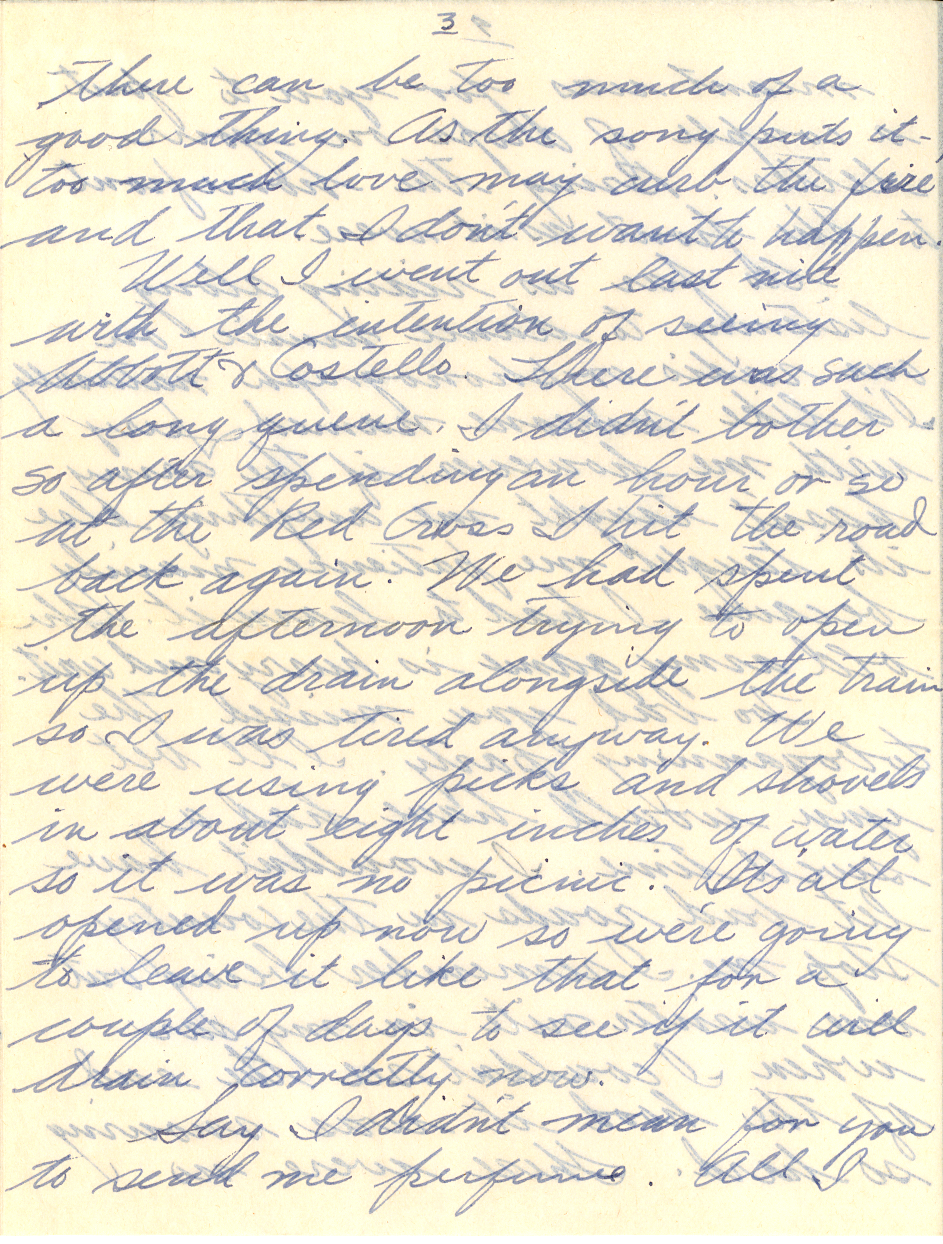 3
There can be too much of a
good thing. As the song puts it -
too much love may curb the fire
and that I don't want to happen.
Well I went out last nite
with the intention of seeing
Abbott & Costello. There was such
a long queue. I didn't bother
so after spending an hour or so
at the Red Cross I hit the road
back again. We had spent
the afternoon trying to open
up the drain alongside the train
so I was tired anyway. We
were using picks and shovels
in about eight inches of water
so it was no picnic. It's all
opened up now so we're going
to leave it like that for a
couple of days to see if it will
drain correctly now.
Say I didn't mean for you
to send me perfume. All I